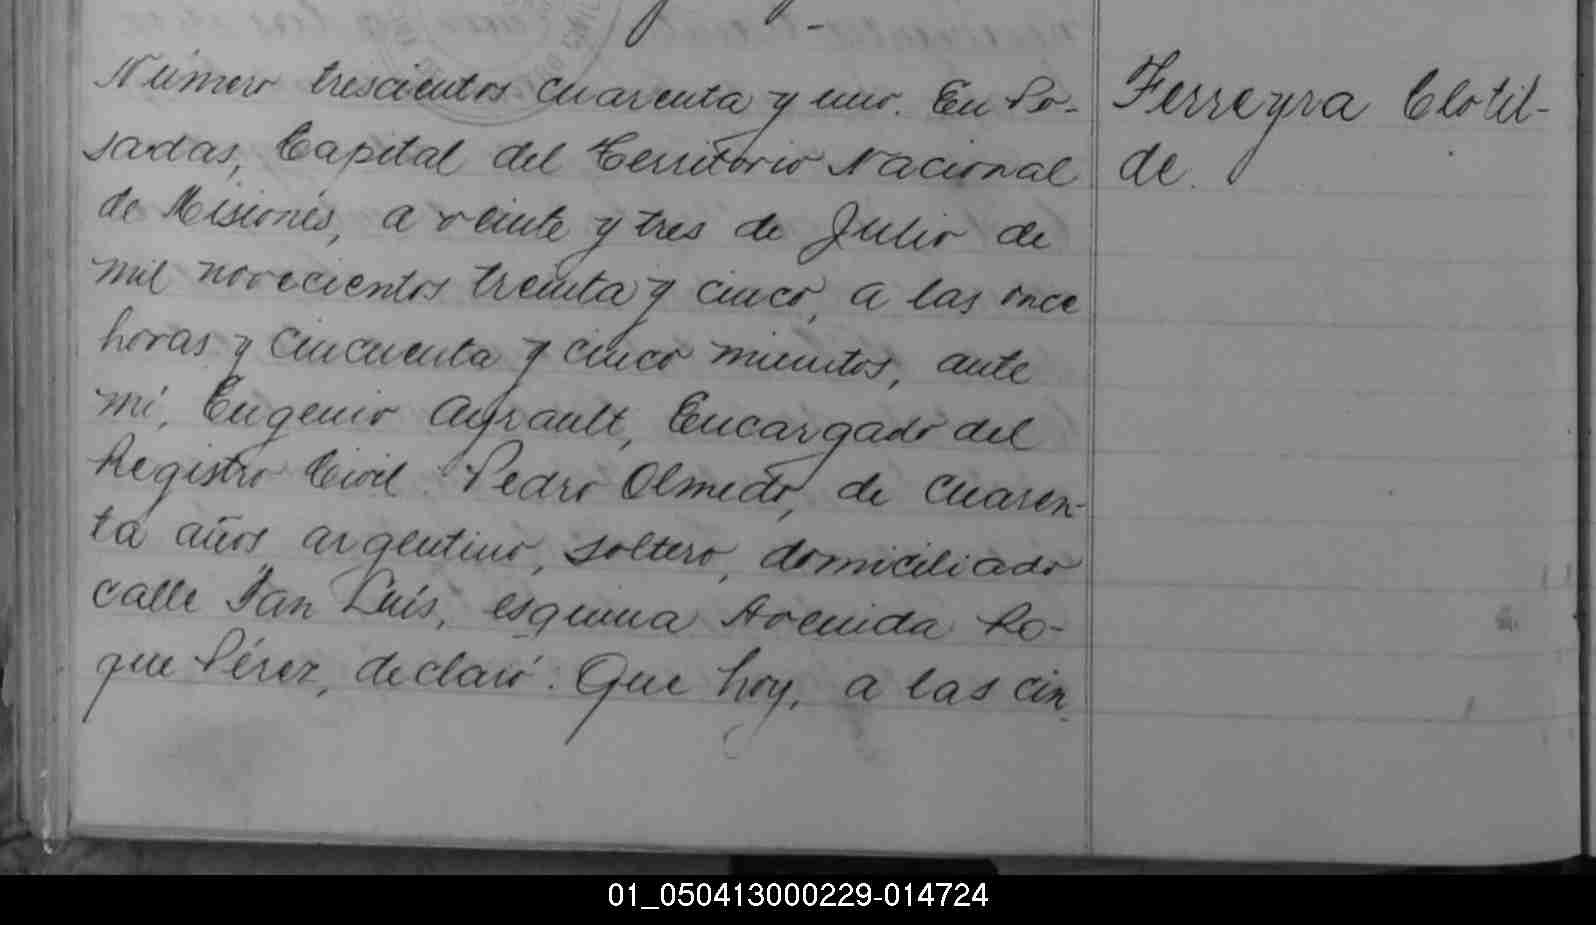 Número trescientos cuarenta y uno. En Po-
sadas, Capital del Territorio Nacional
de Misiones, a veinte y tres de Julio de
mil novecientos treinta y cinco, a las once
horas y cincuenta y cinco minutos, ante
mí, Eugenio Ayrault, Encargado del
Registro Civil Pedro Olmedo, de cuaren-
ta años argentino, soltero, domiciliado
calle San Luis, esquina Avenida Ro-
que Pérez, declaró: Que hoy, a las cin
Ferreyra Clotil-
de.
01_050413000229-014724